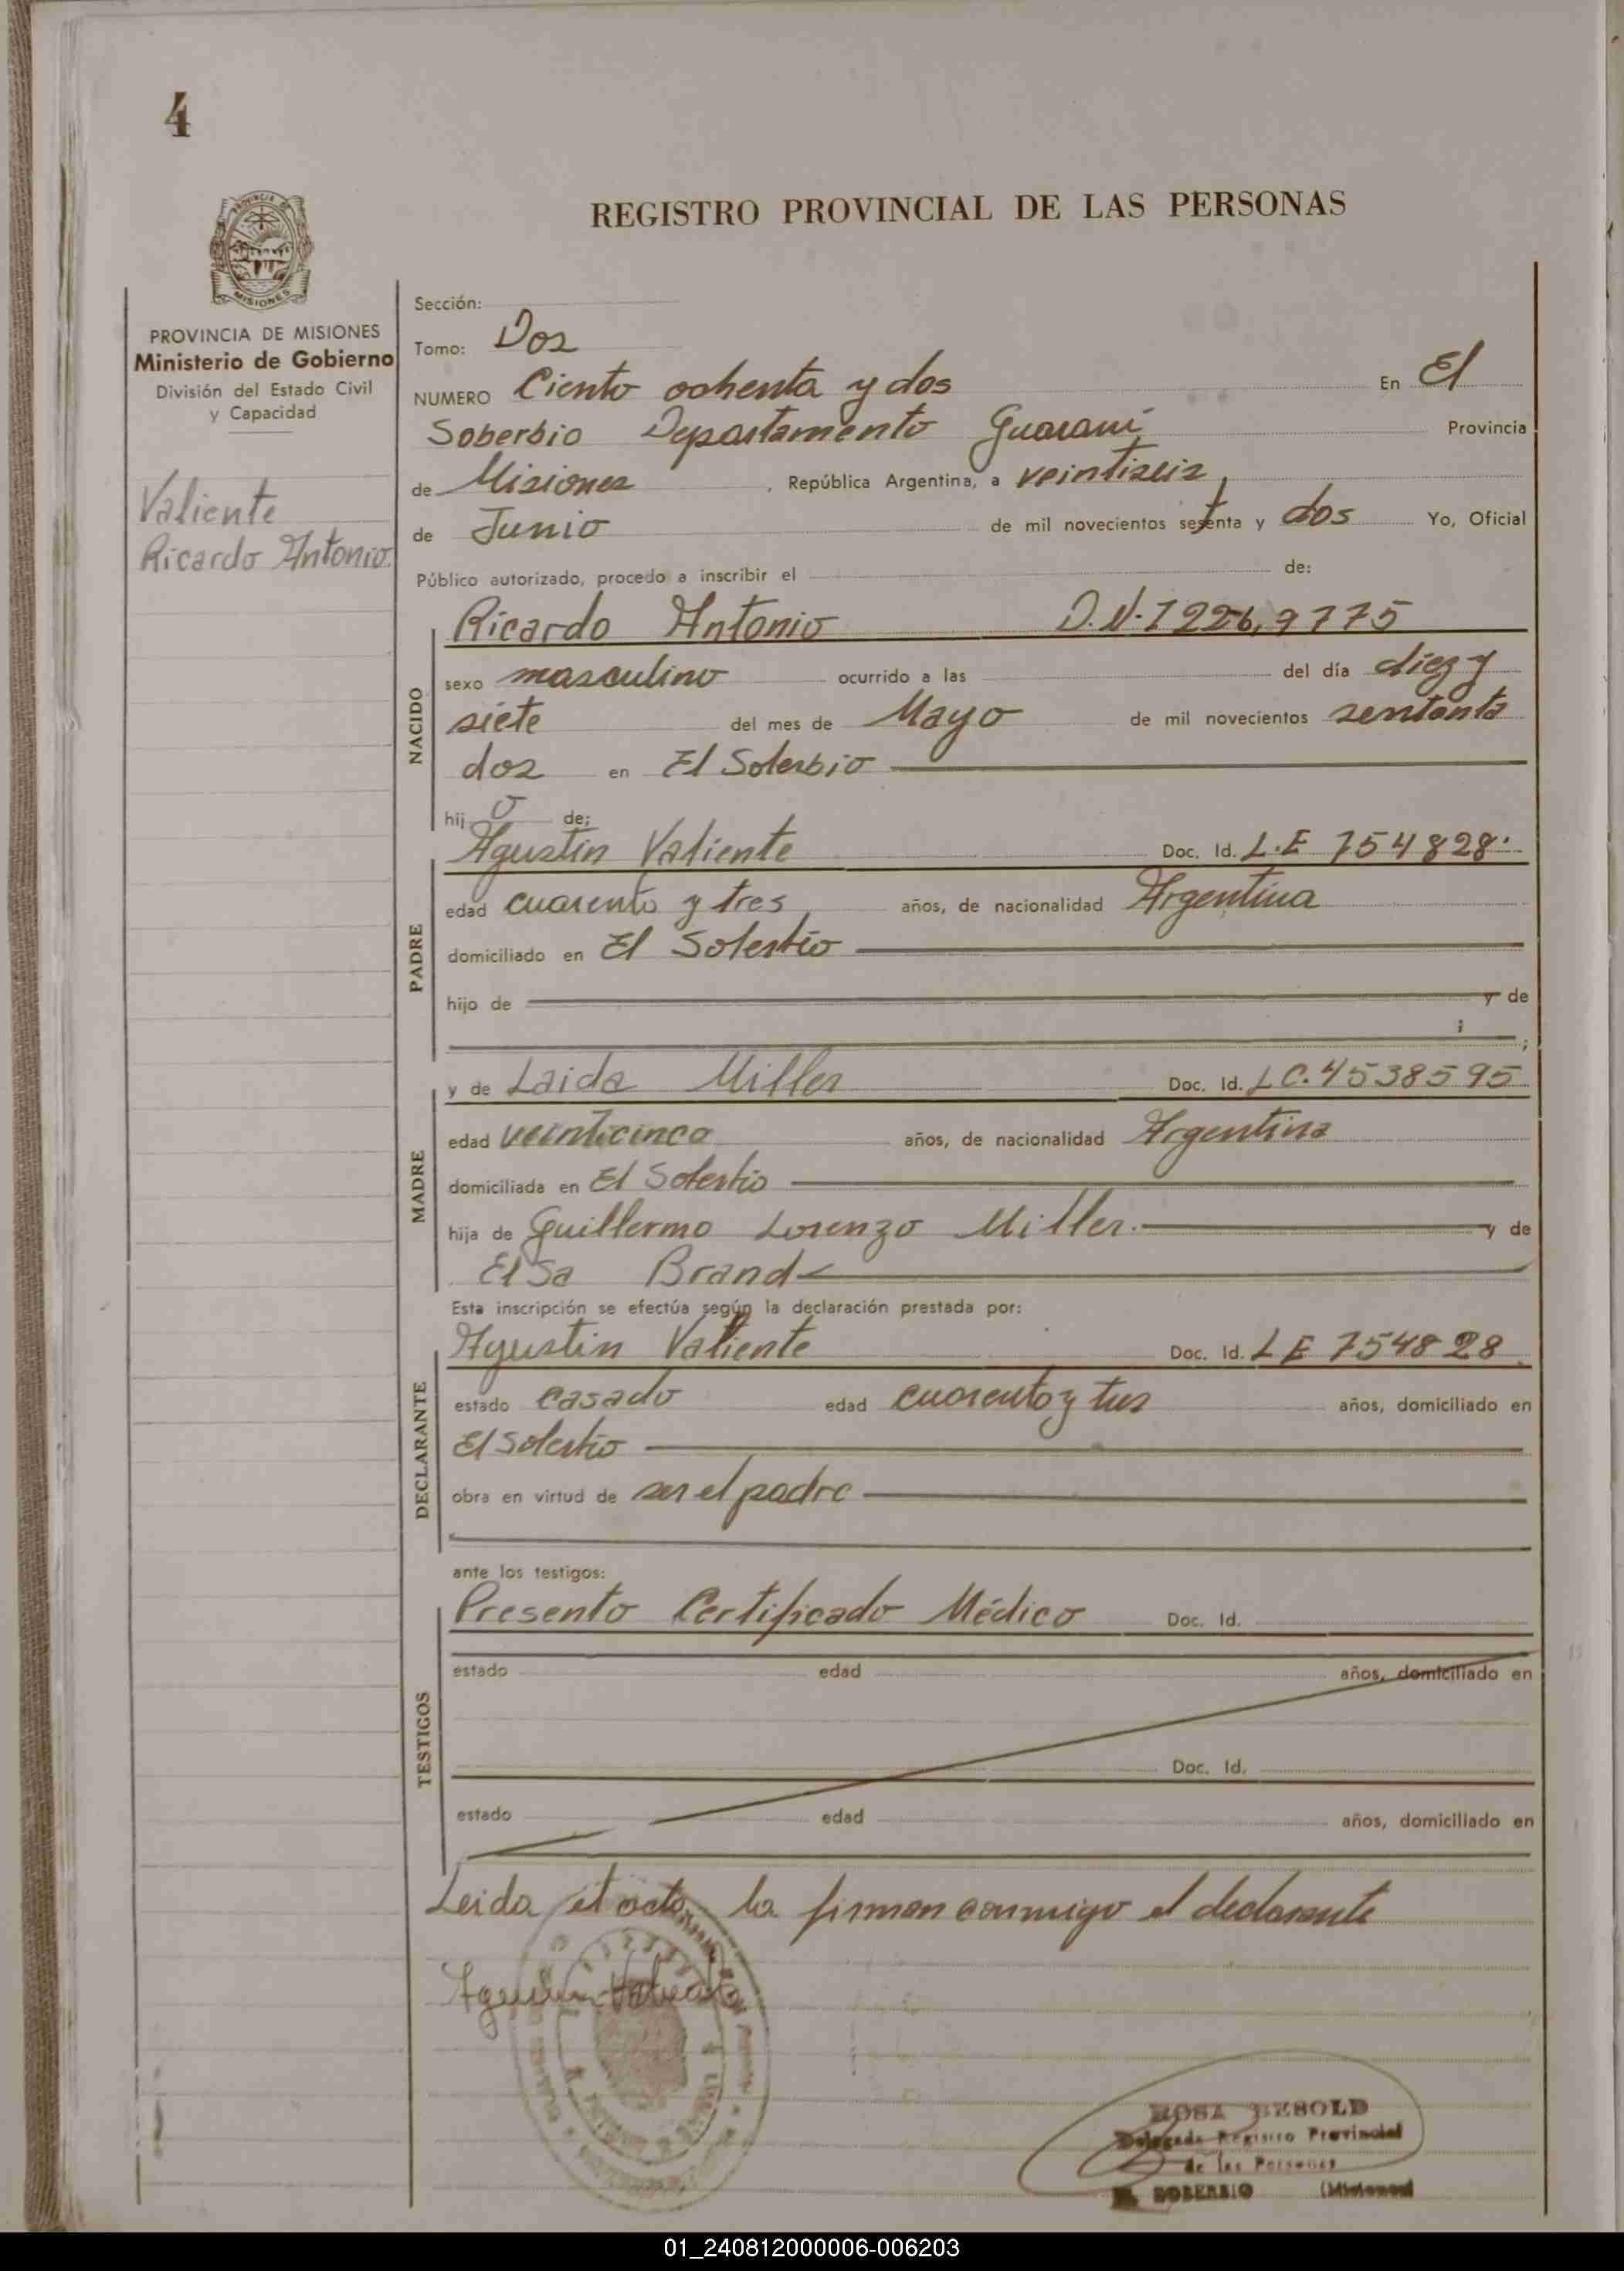 4
REGISTRO PROVINCIAL DE LAS PERSONAS
MISIONES
PROVINCIA DE MISIONES
Ministerio de Gobierno
División del Estado Civil
y Capacidad
Valiente
Ricardo Antonio.
Sección:
Tomo: Dos
NUMERO Ciento ochenta y dos En El
Soberbio Departamento Guaraní Provincia
de Misiones, República Argentina, a veintiseis
de Junio de mil novecientos setenta y dos Yo, Oficial
Público autorizado, procedo a inscribir el de:
NACIDO
Ricardo Antonio D.N.I 226,9775
sexo masculino ocurrido a las del día diez y
siete del mes de Mayo de mil novecientos sententa
dos en El Soberbio
hij o de:
PADRE
Agustin Valiente Doc. Id. L.E 754828.
edad cuarenta y tres años, de nacionalidad Argentina
domiciliado en El Soberbio
hijo de y de
;
MADRE
y de Laida Miller Doc. Id. LC.4538595
edad veinticinco años, de nacionalidad Argentina
domiciliada en El Soberbio
hija de Guillermo Lorenzo Miller. y de
Elsa Brand
Esta inscripción se efectúa según la declaración prestada por:
DECLARANTE
Agustin Valiente Doc. Id. LE 754828
estado casado edad cuarenta y tres años, domiciliado en
El Soberbio
obra en virtud de ser el padre
ante los testigos:
TESTIGOS
Presento Certificado Médico Doc. Id.
estado edad años, domiciliado en
Doc. Id.
estado edad años, domiciliado en
Leida el acta la firman conmigo el declarante
Agustin Valiente
ROSA BESOLD
Delegada Registro Provincial
de las Personas
EL SOBERBIO (Misiones)
01_240812000006-006203